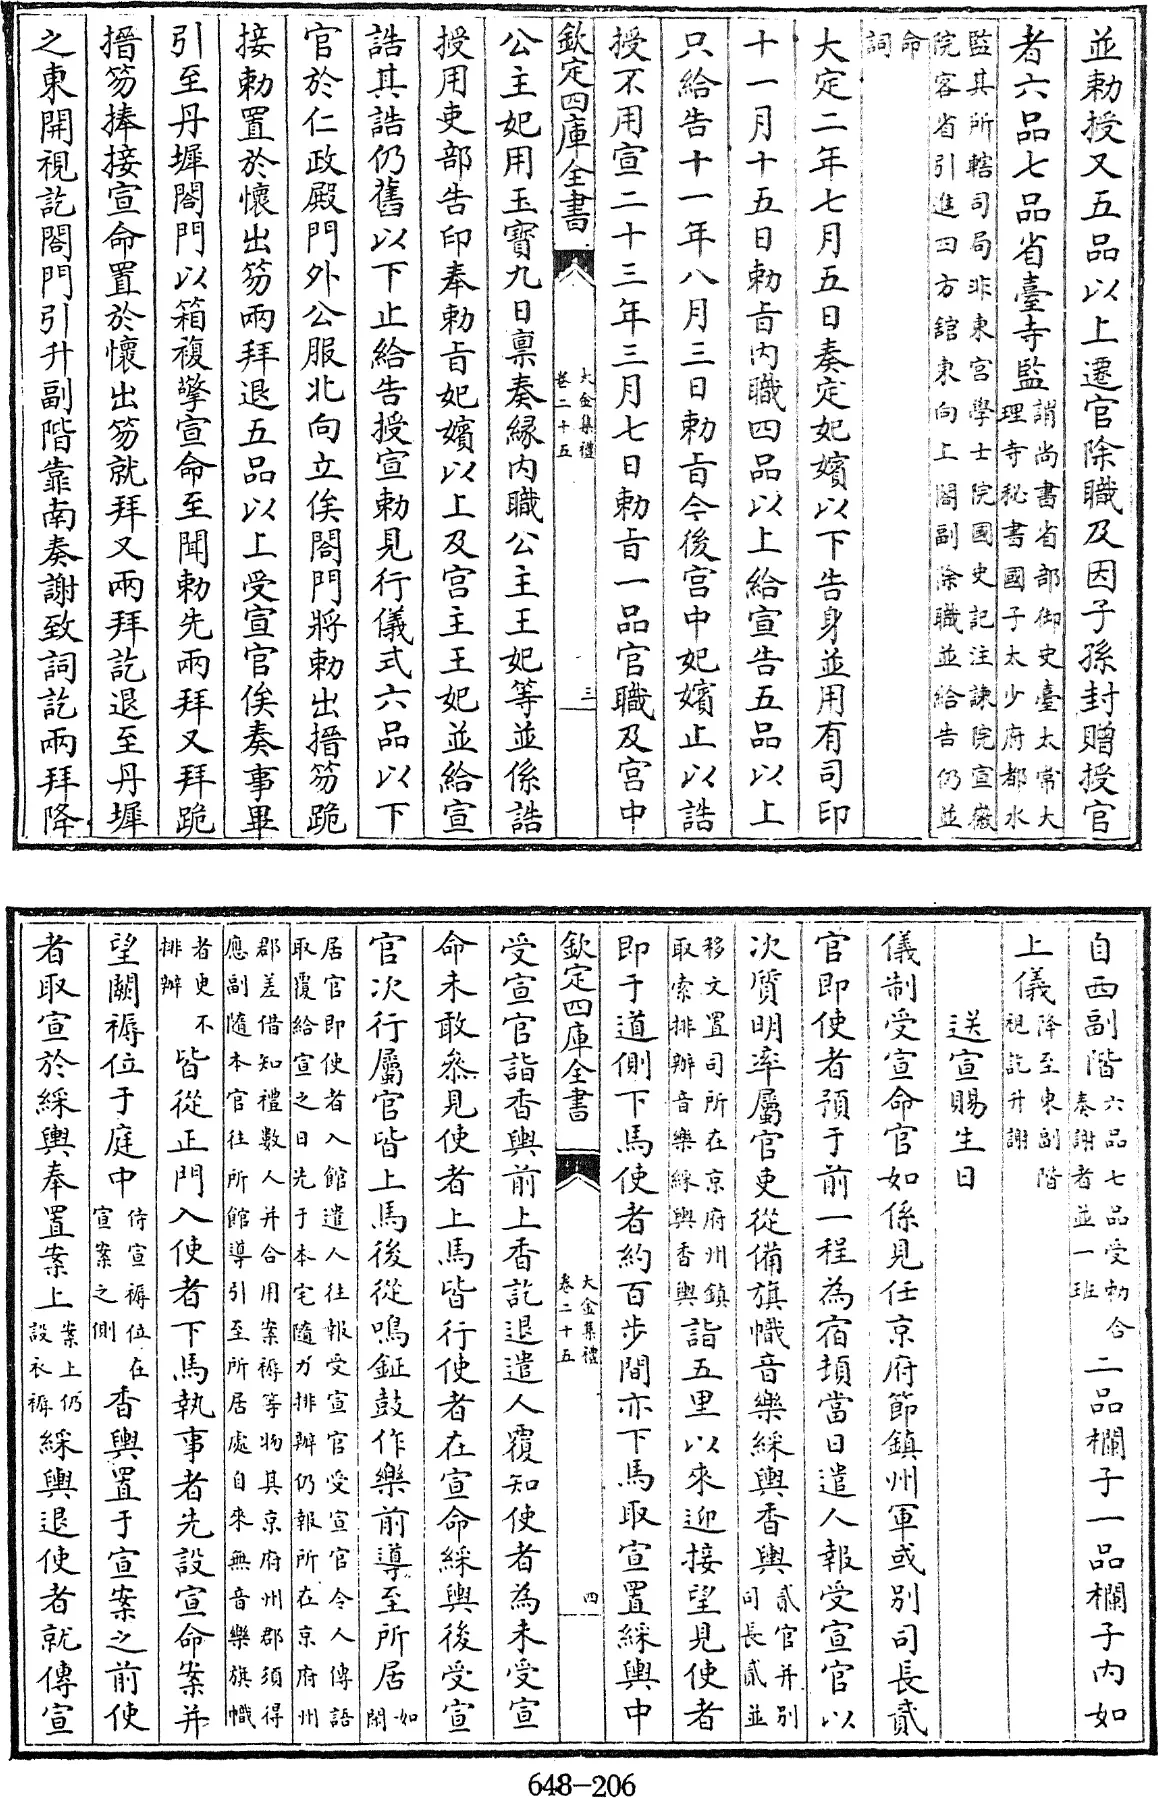 並勅授又五品以上遷官除職及因子孫封贈授官
者六品七品省臺寺監謂尚書省部御史臺太常大
理寺秘書國子太少府都水
監其所轄司局非東宮學士院國史記注諫院宣徽
院客省引進四方館東向上閤副除職並給告仍並
命
詞
大定二年七月五日奏定妃嬪以下告身並用有司印
十一月十五日勅旨内職四品以上給宣告五品以上
只給告十一年八月三日勅旨今後宮中妃嬪止以誥
授不用宣二十三年三月七日勅旨一品官職及宮中
欽定四庫全書
大金集禮
卷二十五
三
公主妃用玉寶九日稟奏緣内職公主王妃等並係誥
授用吏部告印奉勅旨妃嬪以上及宮主王妃並給宣
誥其誥仍舊以下止給告授宣勅見行儀式六品以下
官於仁政殿門外公服北向立俟閤門將勅出搢笏跪
接勅置於懷出笏兩拜退五品以上受宣官俟奏事畢
引至丹墀閤門以箱複擎宣命至聞勅先兩拜又拜跪
搢笏捧接宣命置於懷出笏就拜又兩拜訖退至丹墀
之東開視訖閤門引升副階靠南奏謝致詞訖兩拜降
自西副階六品七品受勅合
奏謝者並一班
二品欄子一品欄子内如
上儀降至東副階
視訖升謝
送宣賜生日
儀制受宣命官如係見任京府節鎮州軍或別司長貳
官即使者預于前一程為宿頓當日遣人報受宣官以
次質明率屬官吏從備旗幟音樂綵輿香輿貳官并別
司長貳並
移文置司所在京府州鎮
取索排辦音樂綵輿香輿
詣五里以來迎接望見使者
即于道側下馬使者約百步間亦下馬取宣置綵輿中
欽定四庫全書
大金集禮
卷二十五
四
受宣官詣香輿前上香訖退遣人覆知使者為未受宣
命未敢叅見使者上馬皆行使者在宣命綵輿後受宣
官次行屬官皆上馬後從鳴鉦鼓作樂前導至所居如
閑
居官即使者入館遣人往報受宣官受宣官令人傳語
取覆給宣之日先于本宅隨力排辦仍報所在京府州
郡差借知禮數人并合用案褥等物其京府州郡須得
應副隨本官往所館導引至所居處自來無音樂旗幟
者更不
排辦
皆從正門入使者下馬執事者先設宣命案并
望闕褥位于庭中侍宣褥位在
宣案之側
香輿置于宣案之前使
者取宣於綵輿奉置案上案上仍
設衣褥
綵輿退使者就傳宣
648-206